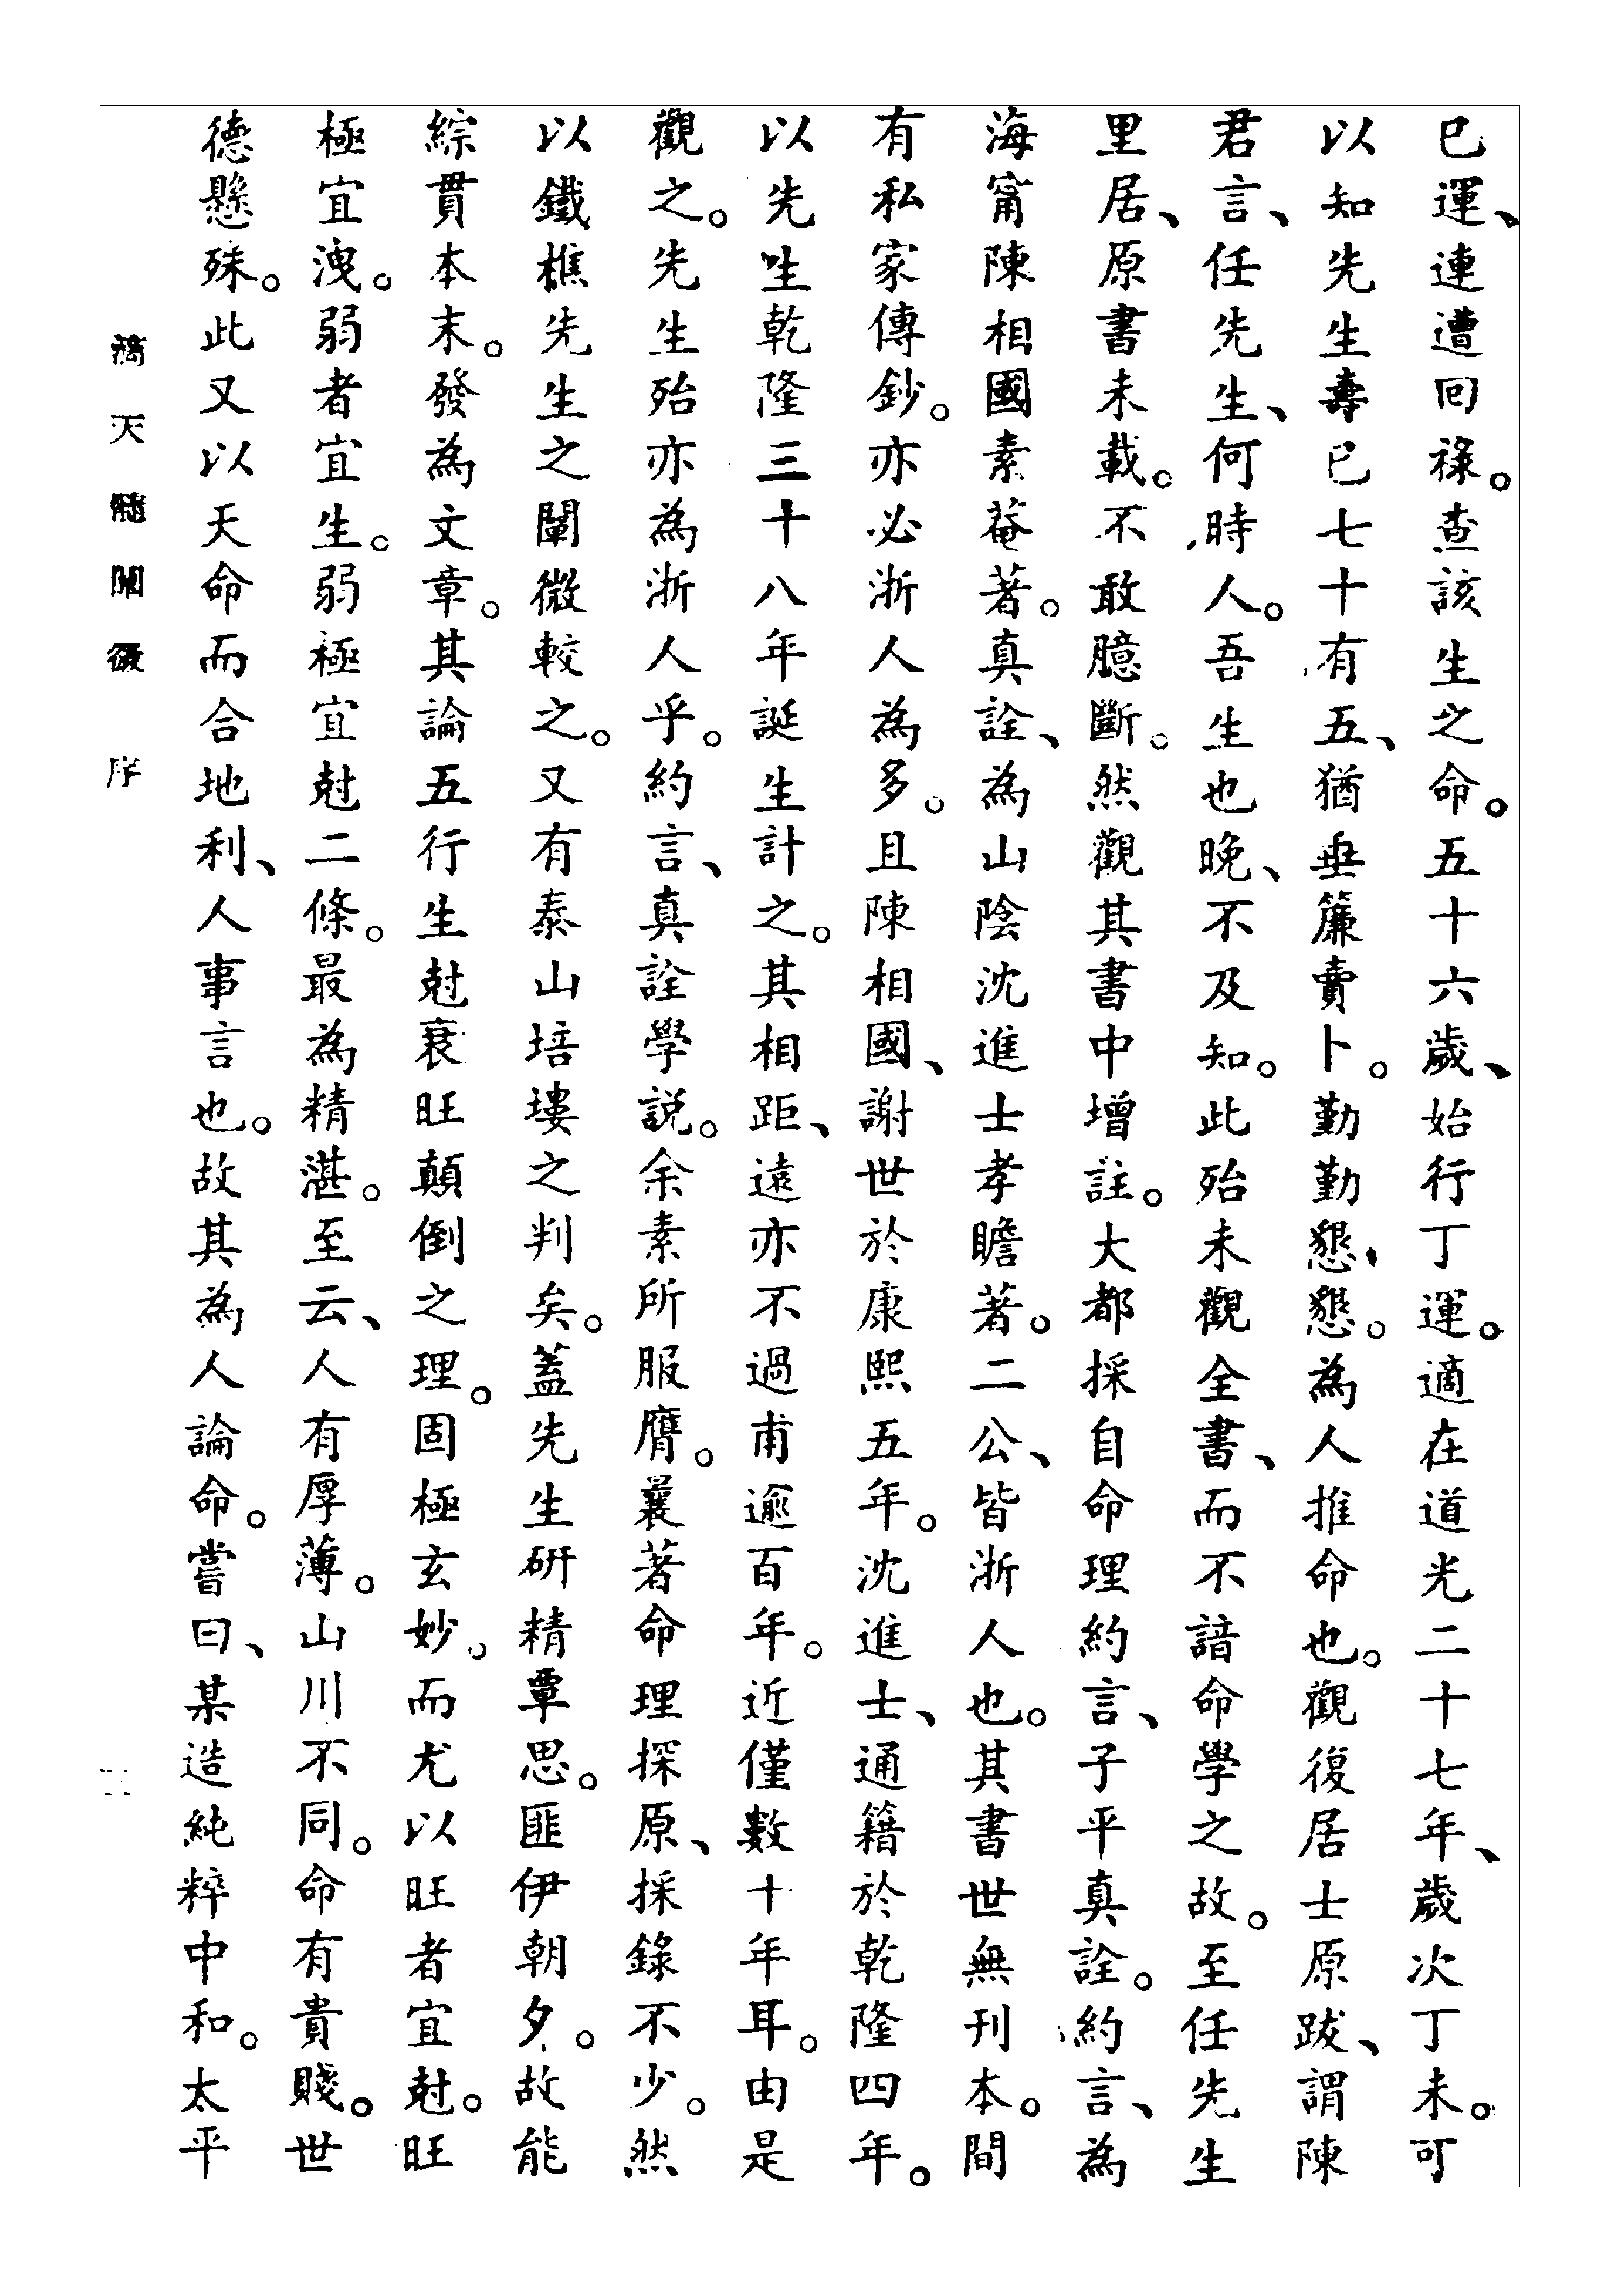 巳運、連遭回祿。查該生之命。五十六歲、始行丁運。適在道光二十七年、歲次丁未。可
以知先生壽已七十有五、猶垂簾賣卜。勤勤懇懇。為人推命也。觀復居士原跋、謂陳
君言、任先生、何時人。吾生也晚、不及知。此殆未觀全書、而不諳命學之故。至任先生
里居、原書未載。不敢臆斷。然觀其書中增註。大都採自命理約言、子平真詮。約言、為
海甯陳相國素菴著。真詮、為山陰沈進士孝瞻著。二公、皆浙人也。其書世無刊本。間
有私家傳鈔。亦必浙人為多。且陳相國、謝世於康熙五年。沈進士、通籍於乾隆四年。
以先生乾隆三十八年誕生計之。其相距、遠亦不過甫逾百年。近僅數十年耳。由是
觀之。先生殆亦為浙人乎。約言、真詮學說。余素所服膺。曩著命理探原、採錄不少。然
以鐵樵先生之闡微較之。又有泰山培塿之判矣。蓋先生研精覃思。匪伊朝夕。故能
綜貫本末。發為文章。其論五行生尅衰旺顛倒之理。固極玄妙。而尤以旺者宜尅。旺
極宜洩。弱者宜生。弱極宜尅二條。最為精湛。至云、人有厚薄。山川不同。命有貴賤。世
德懸殊。此又以天命而合地利、人事言也。故其為人論命。嘗曰、某造純粹中和。太平
滴天髓闡微　序